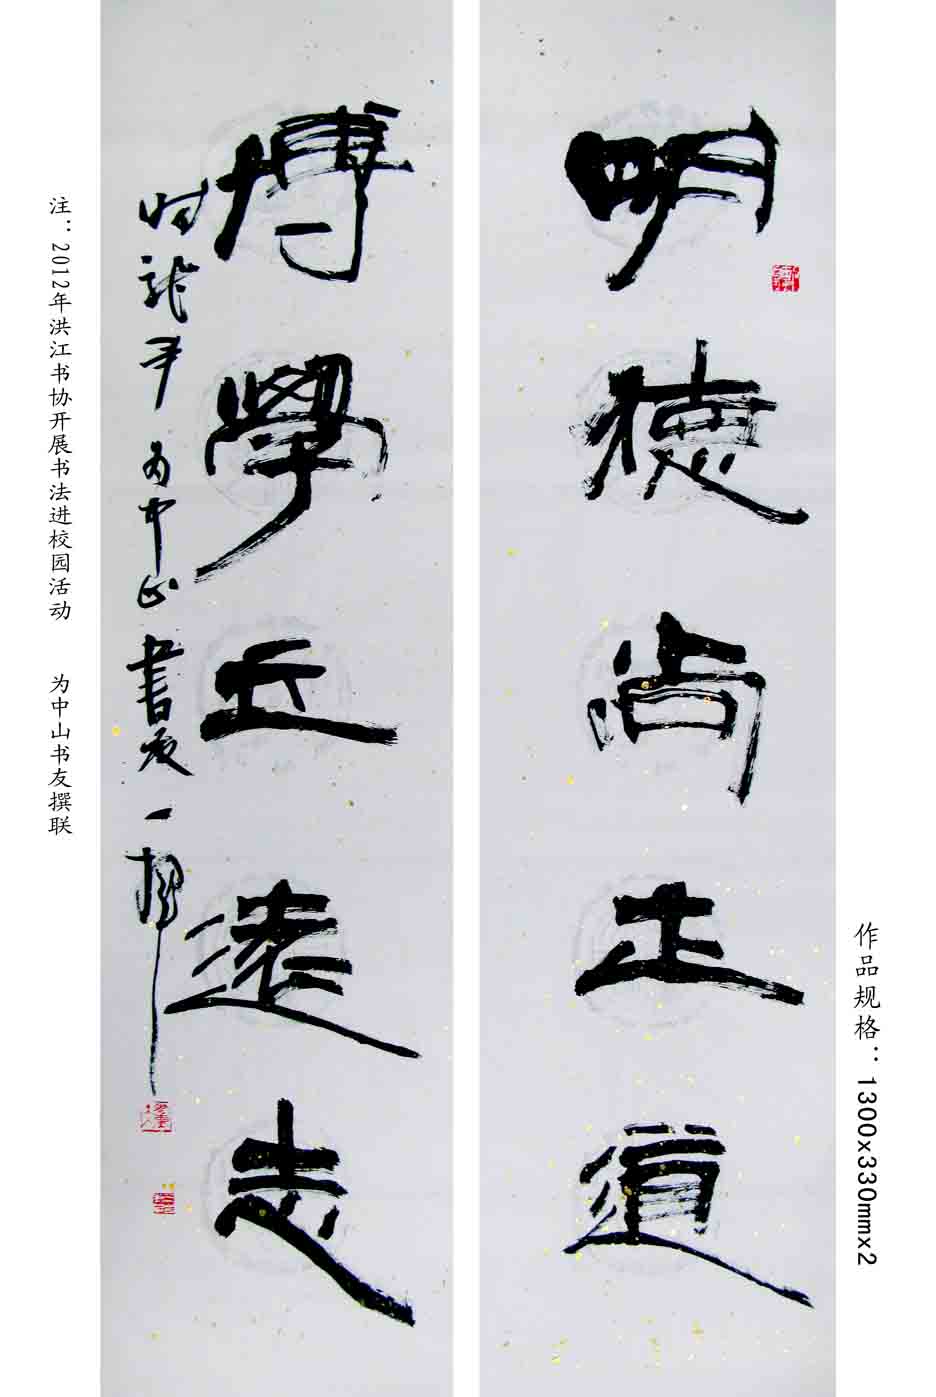 作品规格：1300x330mmx2
明德尚正道
博學立遠志
时龙年为中山書友一揮
注：2012年洪江书协开展书法进校园活动 为中山书友撰联